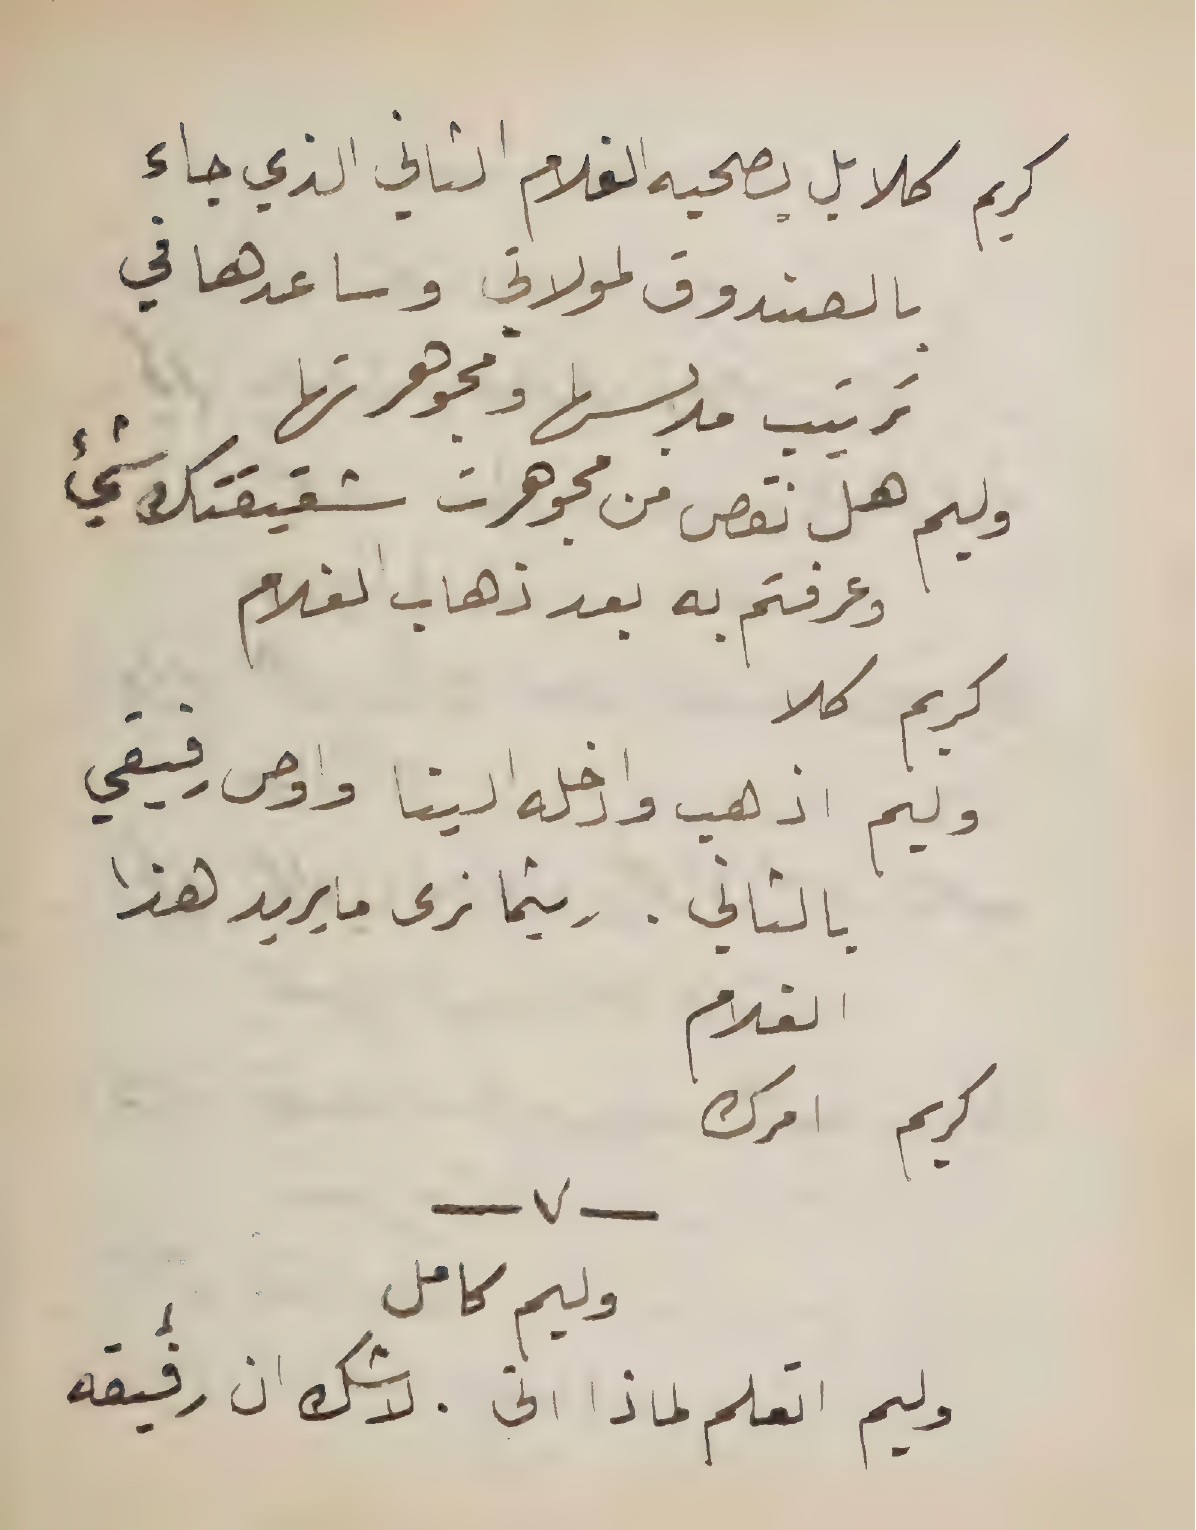 كريم كلا بل يصحبه الغلام الثاني الذي جاء
بالصندوق لمولاتي وساعدها في
ترتيب ملابسها ومجوهرتها
وليم هل نقص من مجوهرت شقيقتك شيئ
وعرفتم به بعد ذهاب الغلام
كريم كلا
وليم اذهب وادخله الينا واوص رفيقي
بالثاني . ريثما نرى ما يريد هذا
الغلام
كريم امرك
— ٧ —
وليم كامل
وليم اتعلم لماذا اتى . لاشك ان رفيقه